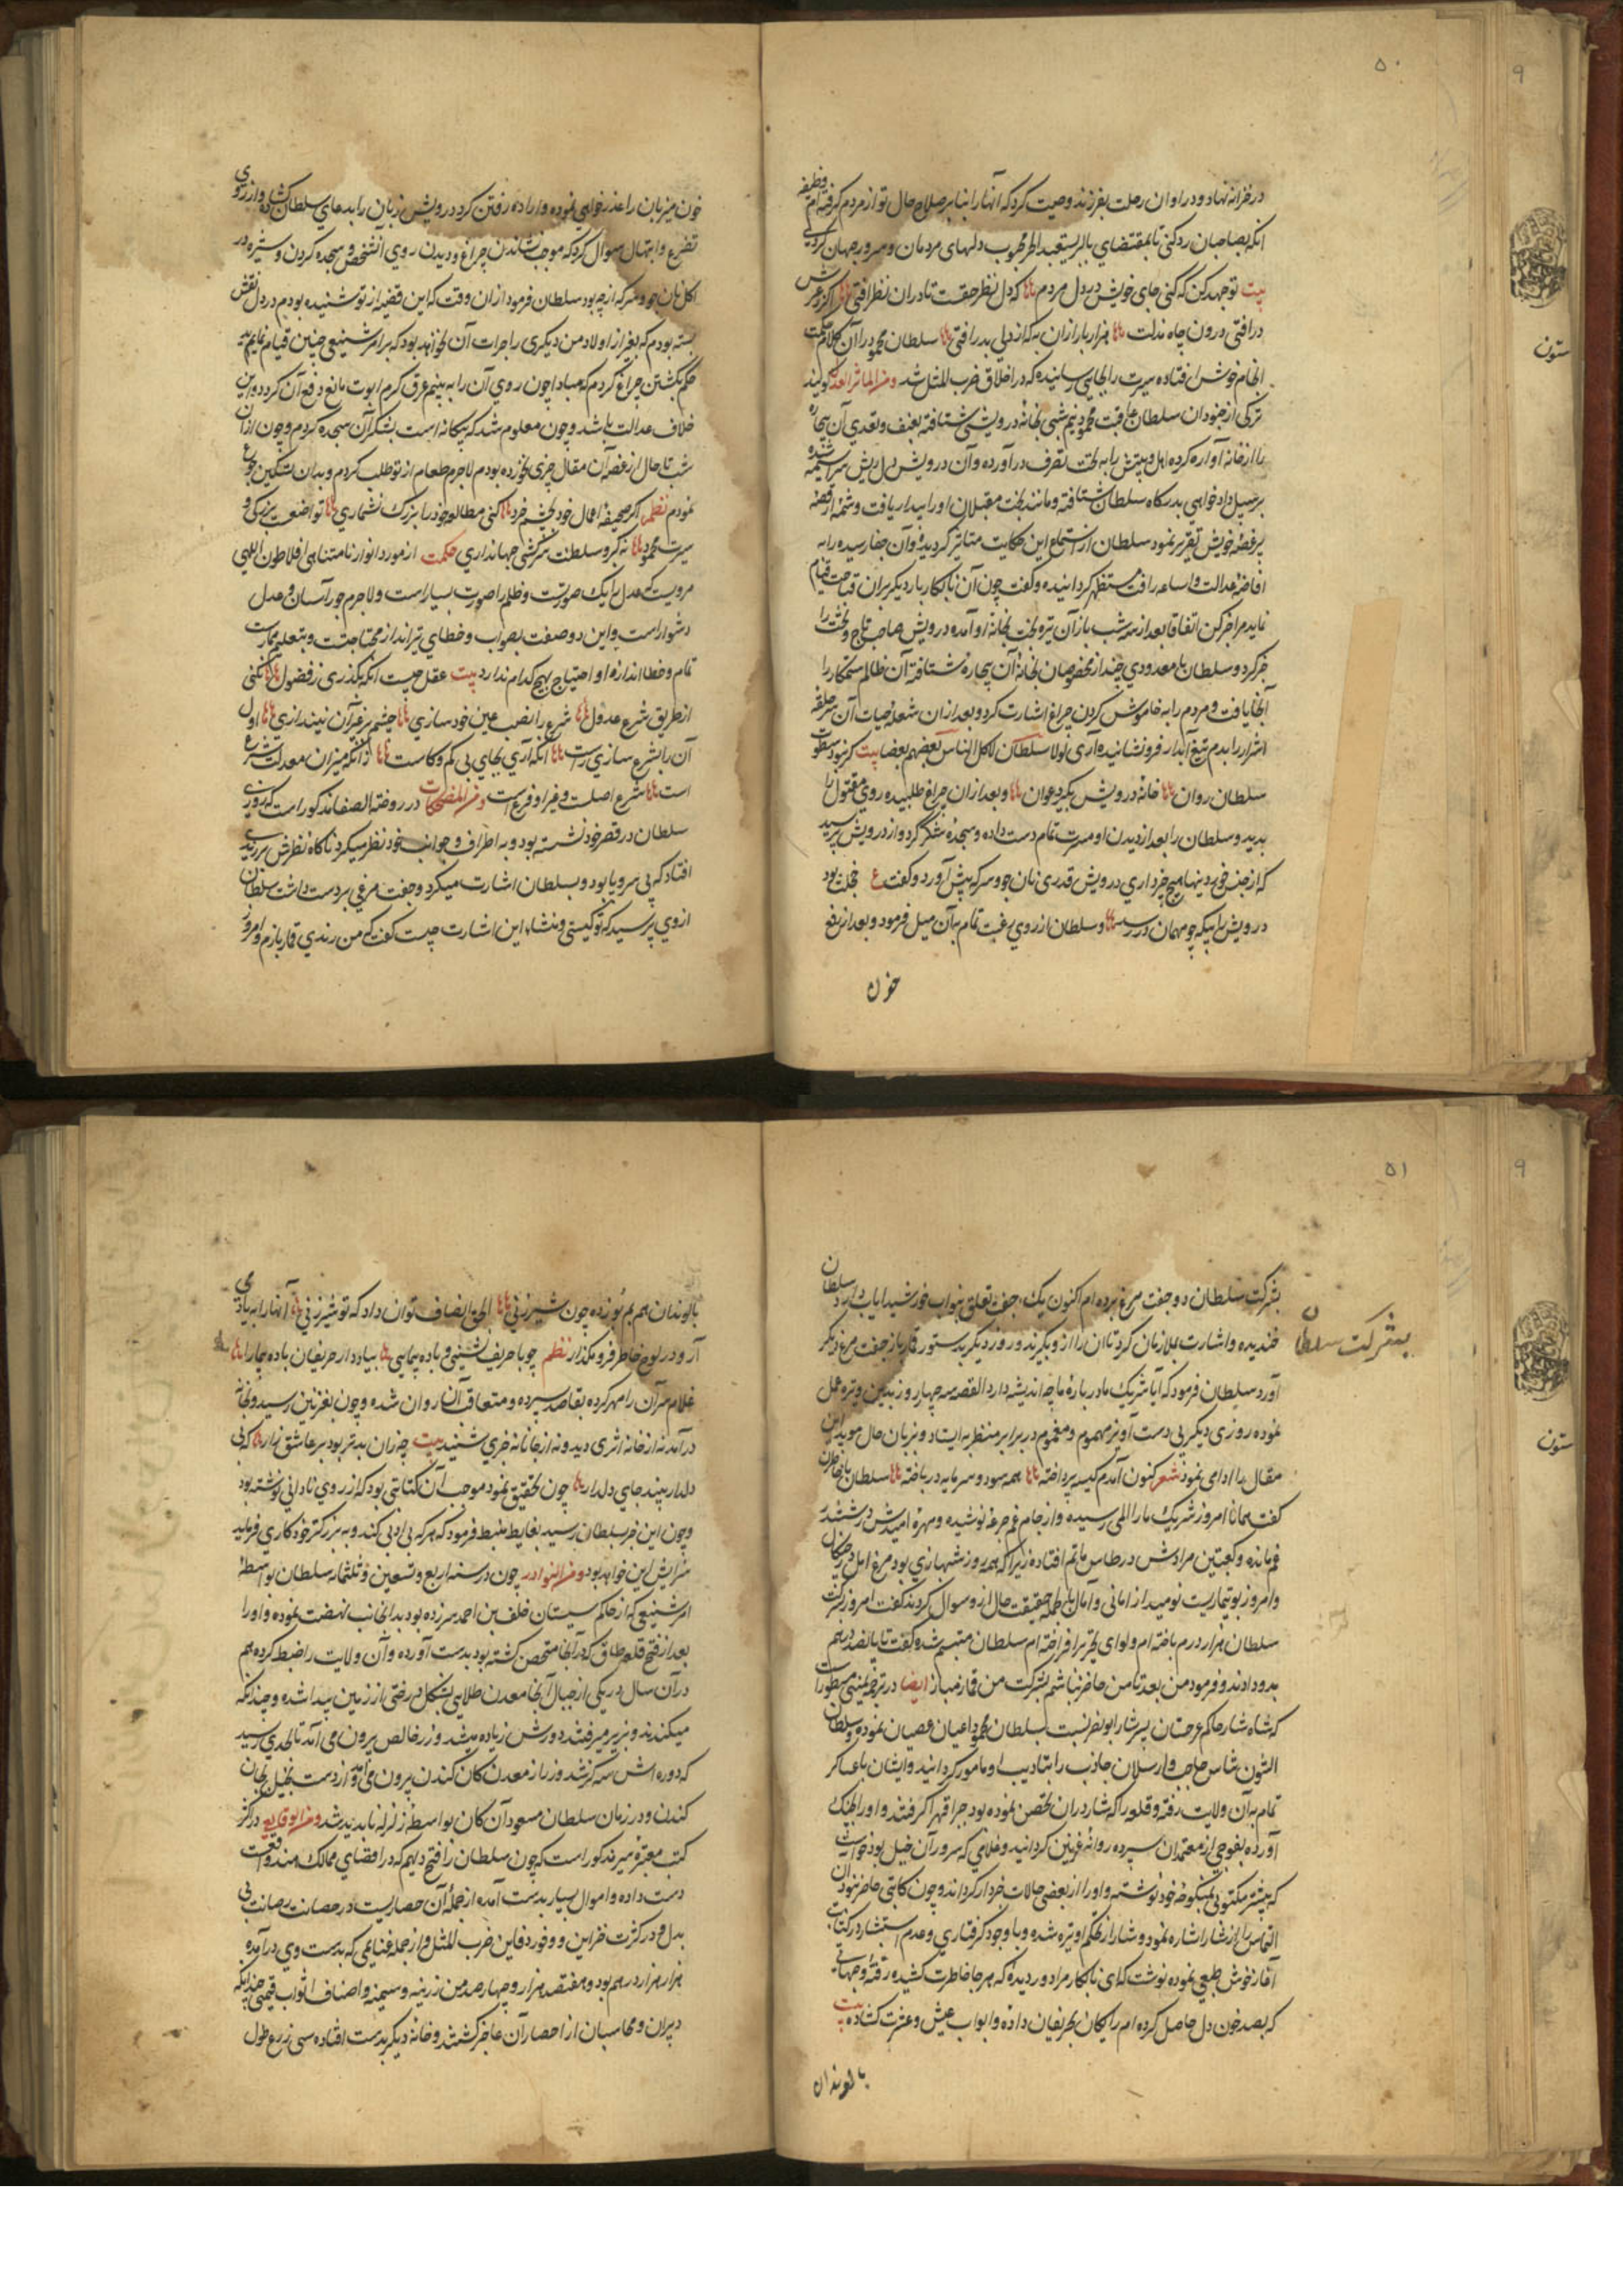 ۵۰
۹
در خزانه نهاد و در اوان رحلت بفرزند وصیت کرد که آنها را بنابر صلاح حال تو از مردم گرفته ام وظیفه
انکه بصاحبان رد کنی تا بمقتضای بالبر یستعبد الحر محبوب دلهای مردمان و سرور جهان گردی
بیت تو جهد کن که کنی جای خویش در دل مردم که دل نظر حقست تا در ان نظر افتی اگر ز عرش
در افتی درون چاه مذلت هزار بار ازان به که از دلی بدر افتی سلطان محمود را آن کلام حکمت
انجام خوش افتاده سیرت را بجایی رسانیده که در اخلاق ضرب المثل شد و من الماثر العدل گویند
ترکی از جنودان سلطان عاقبت محمود نیم شبی بخانه درویشی شتافته بعنف و تعدی آن بیچاره
را از خانه آواره کرده اهل و بیتش را به تحت تصرف در آورده و آن درویش دل ریش سراسیمه شده
بر سبیل داد خواهی بدرگاه سلطان شتافته و مانند بخت مقبلان او را بیدار یافت و شمه از قصه
پر غصه خویش تقریر نمود سلطان از استماع این حکایت متاثر گردیده و آن جفا رسیده را به
افاضه عدالت و اساعه رافت مستظهر گردانیده و گفت چون آن نابکار بار دیگر بران قباحت قیام
نماید مرا خبر کن اتفاقا بعد از سه شب باز آن تیره بخت بخانه او آمده درویش صاحب تاج و تخت را
خبر کرد و سلطان با معدودی چند از مخصوصان بخانه آن بیچاره شتافته آن ظالم ستمکار را
آنجا یافت و مردم را به خاموش کردن چراغ اشارت کرد و بعد ازان شعله حیات آن سر حلقه
اشرار را بدم تیغ آبدار فرو نشانیده آری لولا سلطان لاکل الناس بعضهم بعضا بیت گر نبود سطوت
سلطان روان خانه درویش بگیرد عوان و بعد ازان چراغ طلبیده روی مقتول را
بدید و سلطان را بعد از دیدن او مسرت تمام دست داده و سجده شکر کرد و از درویش پرسید
که از جنس خوردنیها هیچ چیز داری درویش قدری نان جو و سرکه پیش آورد و گفت ع خجلت بود
درویش را بیگه چو مهمان در رسد و سلطان از روی رغبت تمام به آن میل فرمود و بعد از رفع
خون
خون میزبان را عذر خواهی نموده و اراده رفتن کرد درویش زبان را بدعای سلطان گشاده و از روی
تضرع و ابتهال سوال کرد که موجب نشاندن چراغ و دیدن روی آنشخص و سجده کردن و سیزده در
اکل نان جو و سرکه از چه بود سلطان فرمود از ان وقت که این قضیه از تو شنیده بودم در دل نقش
بسته بودم که بغیر از اولاد من دیگری را جرات آن نخواهد بود که بر امر شنیعی چنین قیام نماید
حکم بکشتن چراغ کردم که مبادا چون روی آن را به بینم عرق کرم ابوت مانع دفع آن گردد و این
خلاف عدالت باشد و چون معلوم شد که بیگانه است بشکر آن سجده کردم و چون از ان
شب تا حال از غصه آن مقال چیزی نخورده بودم لاجرم طعام از تو طلب کردم و بدان تسکین جوع
نمودم نظم اگر صحیفه اعمال خود بچشم خرد کنی مطالعه خود را بزرگ نشماری تواضعست بزرگی و
سیرت محمود نه کبر و سلطنت و سرکشی جهانداری حکمت از مورد انوار نامتناهی افلاطون الهی
مرویست که عدل را یک صورتست و ظلم را صورت بسیار است و لاجرم جور آسان و عدل
دشوار است و این دو صفت بصواب و خطای تیر انداز محتاجست و بتعلیم ممارست
تمام و خطا اندازه او احتیاج بهیچ کدام ندارد بیت عقل چیست انکه بگذری ز فضول نکنی
از طریق شرع عدول شرع را نصب عین خود سازی چشم بر غیر آن نیندازی اول
آن را بشرع سازی راست انکه آری بجای بی کم و کاست زانکه میزان معدلت شرع
است شرع اصلست و غیر او فرع است و من المضحکات در روضة الصفا مذکور است که روزی
سلطان در قصر خود نشسته بود و به اطراف و جوانب خود نظر میکرد ناگاه نظرش بر رندی
افتاد که بی سر و پا بود و بسلطان اشارت میکرد و جفت مرغی بر دست داشت سلطان
از وی پرسید که تو کیستی و منشاء این اشارت چیست گفت که من رندی قمار بازم و امروز
۵۱
۹
بشرکت سلطان دو جفت مرغ برده ام اکنون یک جفت تعلق بنواب خورشید ایاب دارد سلطان
بشرکت سلطان
خندیده و اشارت بملازمان کرد تا ان را از و بگیرند و روز دیگر بدستور قمار باز جفت مرغ دیگر
آورد سلطان فرمود که آیا شریک ما در باره ما چه اندیشه دارد القصه سه چهار روز بدین وتیره عمل
نموده روزی دیگر بی دست آویز مهموم و مغموم در برابر منتظر به ایستاد و بزبان حال موید این
مقال را ادای نمود شعر کنون آمدم کیسه پرداخته همه سود و سرمایه در باخته سلطان با حاضران
گفت همانا امروز شریک ما را المی رسیده و از جام غم جرعه نوشیده و مهره امیدش در ششدر
غم مانده و کعبتین مرادش در طاس ماتم افتاده زیرا که همه روز شهبازی بود مرغ امل در چنگال
و امروز بوتیماریست نومید از امانی و آمال باطله حقیقت حال از و سوال کردند گفت امروز بشرکت
سلطان هزار درم باخته ام و لوای تحیر بر افراخته ام سلطان متبسم شده گفت تا پانصد درهم
بدو دادند و فرمود من بعد تا من حاضر نباشم بشرکت من قمار مباز ایضا در ترجمه یمینی مسطور است
که شاه شار حاکم غرجستان پسر شار ابو نصر نسبت بسلطان محمود اعیان عصیان نموده و سلطان
التون تاش حاجب و ارسلان جاذب را بتادیب او مامور گردانید و ایشان با عساکر
تمام به آن ولایت رفته و قلعه را که شار دران تحصن نموده بود جبرا قهرا گرفتند و او را بچنگ
آورده بفوجی از معتمدان سپرده روانه غزنین گردانید و غلامی که سرور آن خیل بود خواست
که پیشتر مکتوبی بمنکوحه خود نوشته و او را از بعضی حالات خبردار گرداند و چون کاتبی حاضر نبود ان
التماس را از شار اشاره نمود و شار از تحکم او تیره شده و با وجود گرفتاری و عدم استشار در کتابت
آغاز خوش طبعی نموده نوشت که ای نابکار مراد و ردیده که هر جا خاطرت کشیده رفته و جهاتی
که بصد خون دل حاصل کرده ام رایگان بحریفان داده و ابواب عیش و عشرت گشاده بیت
با لوندان
با لوندان هم بم بُو زده چون شیر زنی الحق انصاف توان داد که تو شیر زنی آنها را به یاد می
آر و در لوح خاطر فرو مگذار نظم چو با حریف نشینی و باده پیمایی بیاد دار حریفان باده پیما را
غلام سر آن را مهر کرده بقاصد سپرده و متعاقب آن روان شده و چون بغزنین رسید و بخانه
در آمد نه از خانه اثری دید و نه از جانانه خبری شنید بیت چه زان بدتر بود بر عاشق زار که بی
دلدار بیند جای دلدار چون تحقیق نمود موجب آن کتابتی بود که از روی نادانی نوشته بود
و چون این خبر بسلطان رسید بغایط منبسط فرمود که هر که بی ادبی کند و به بزرگتر خود کاری فرماید
سزایش این خواهد بود و من النوادر چون در سنه اربع و تسعین و ثلثمائه سلطان بواسطه
امر شنیعی که از حاکم سیستان خلف بن احمد سر زده بود بدانجانب نهضت نموده و او را
بعد از فتح قلعه طاق که در آنجا متحصن گشته بود بدست آورده و آن ولایت را ضبط کرده هم
در آن سال در یکی از جبال آنجا معدن طلایی بشکل درختی از زمین پیدا شده و چندانکه
میکندند و بزیر میرفتند دورش زیاده میشد و زر خالص بیرون می آمد تا بحدی رسید
که دوره اش سه گز شد و زر از معدن کان کندن بیرون می آمد و از دست بخیل بجان
کندن و در زمان سلطان مسعود آن کان بواسطه زلزله ناپدید شد و من الوقایع در اکثر
کتب معتبره سیر مذکور است که چون سلطان را فتح دلهم که در اقصای ممالک هند واقعست
دست داده و اموال بسیار بدست آمده از جمله آن حصاریست در حصانت رصانت بی
بدل و در کثرت خزاین و وفور دفاین ضرب المثل و از جمله غنایمی که بدست وی در آمده
هزار هزار درهم بود و هفتصد هزار و چهار صد من زرینه و سیمینه و اصناف اثواب قیمتی چندانکه
دبیران و محاسبان از احصار آن عاجز گشتند و خانه دیگر بدست افتاده سی زرع طول
ستون
ستون